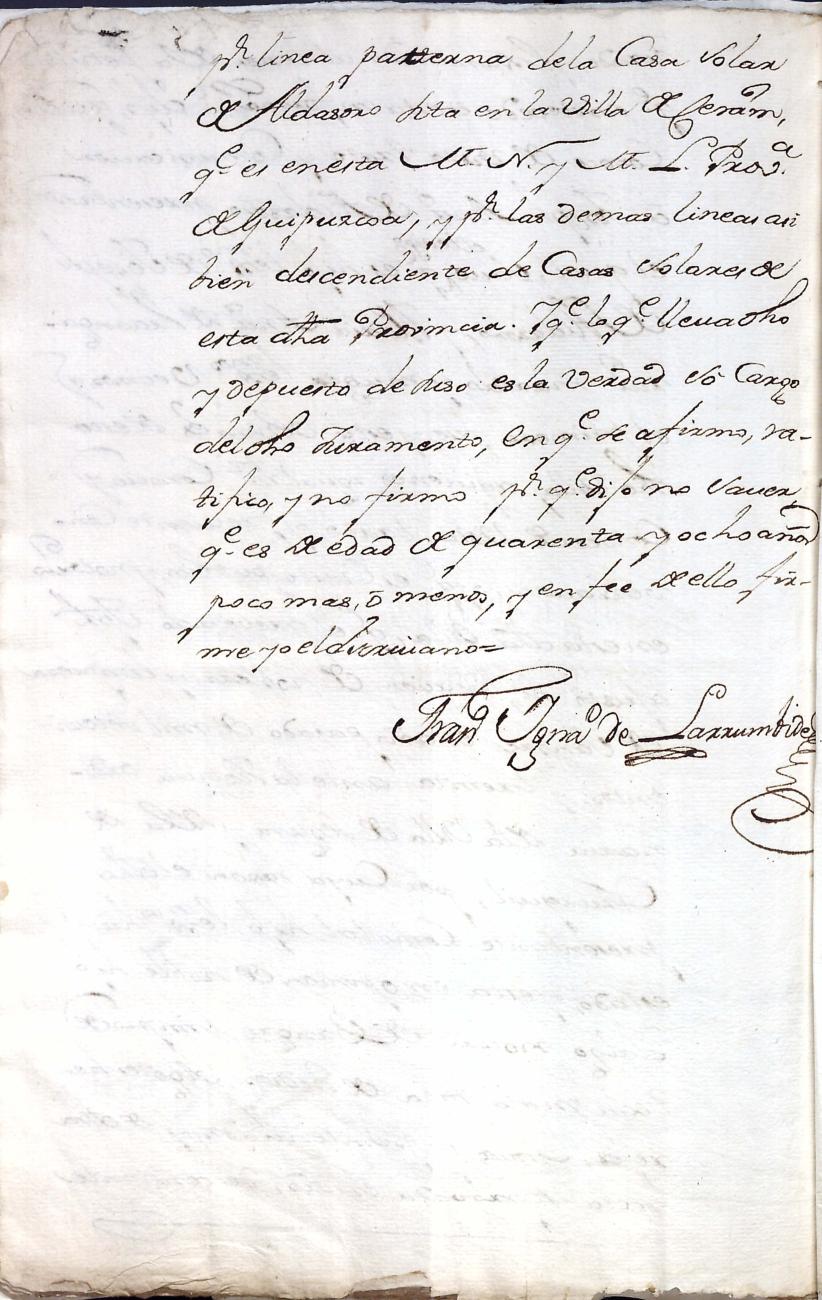 pr. linea paterna dela Casa Solar
de Aldasoro sita en la Villa de Cerain,
qe. es en esta M. N. y M. L. Prova.
de Guipuzcoa, y pr. las demas lineas asi
bien descendiente de Casas Solares de
esta dha Provincia. Y qe. lo qe. lleva dho
y depuesto de suso es la Verdad só Cargo
del dho Juramento, en qe. se afirmo, ra-
tifico, y no firmo pr. qe. dijo no saver,
qe. es de edad de quarenta y ocho años
poco mas, ō menos, y en fee de ello fir-
me yo el Escrivano=
Franco. Ignao. de Larrumbide